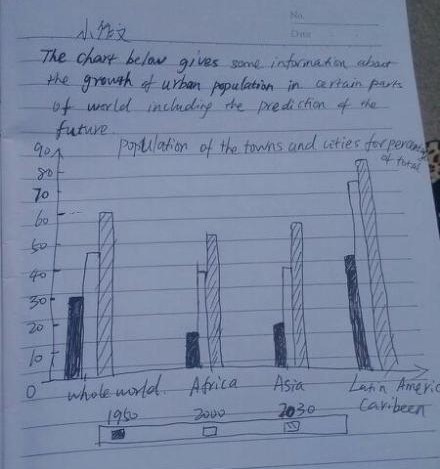 No.
Date
小作文
The chart below gives some information about
the growth of urban population in certain parts
of world including the prediction of the
future.
population of the towns and cities for percentage
of total
90
80
70
60
50
40
30
20
10
0
whole world. Africa Asia Latin Americ
Caribeen
1950 2000 2030